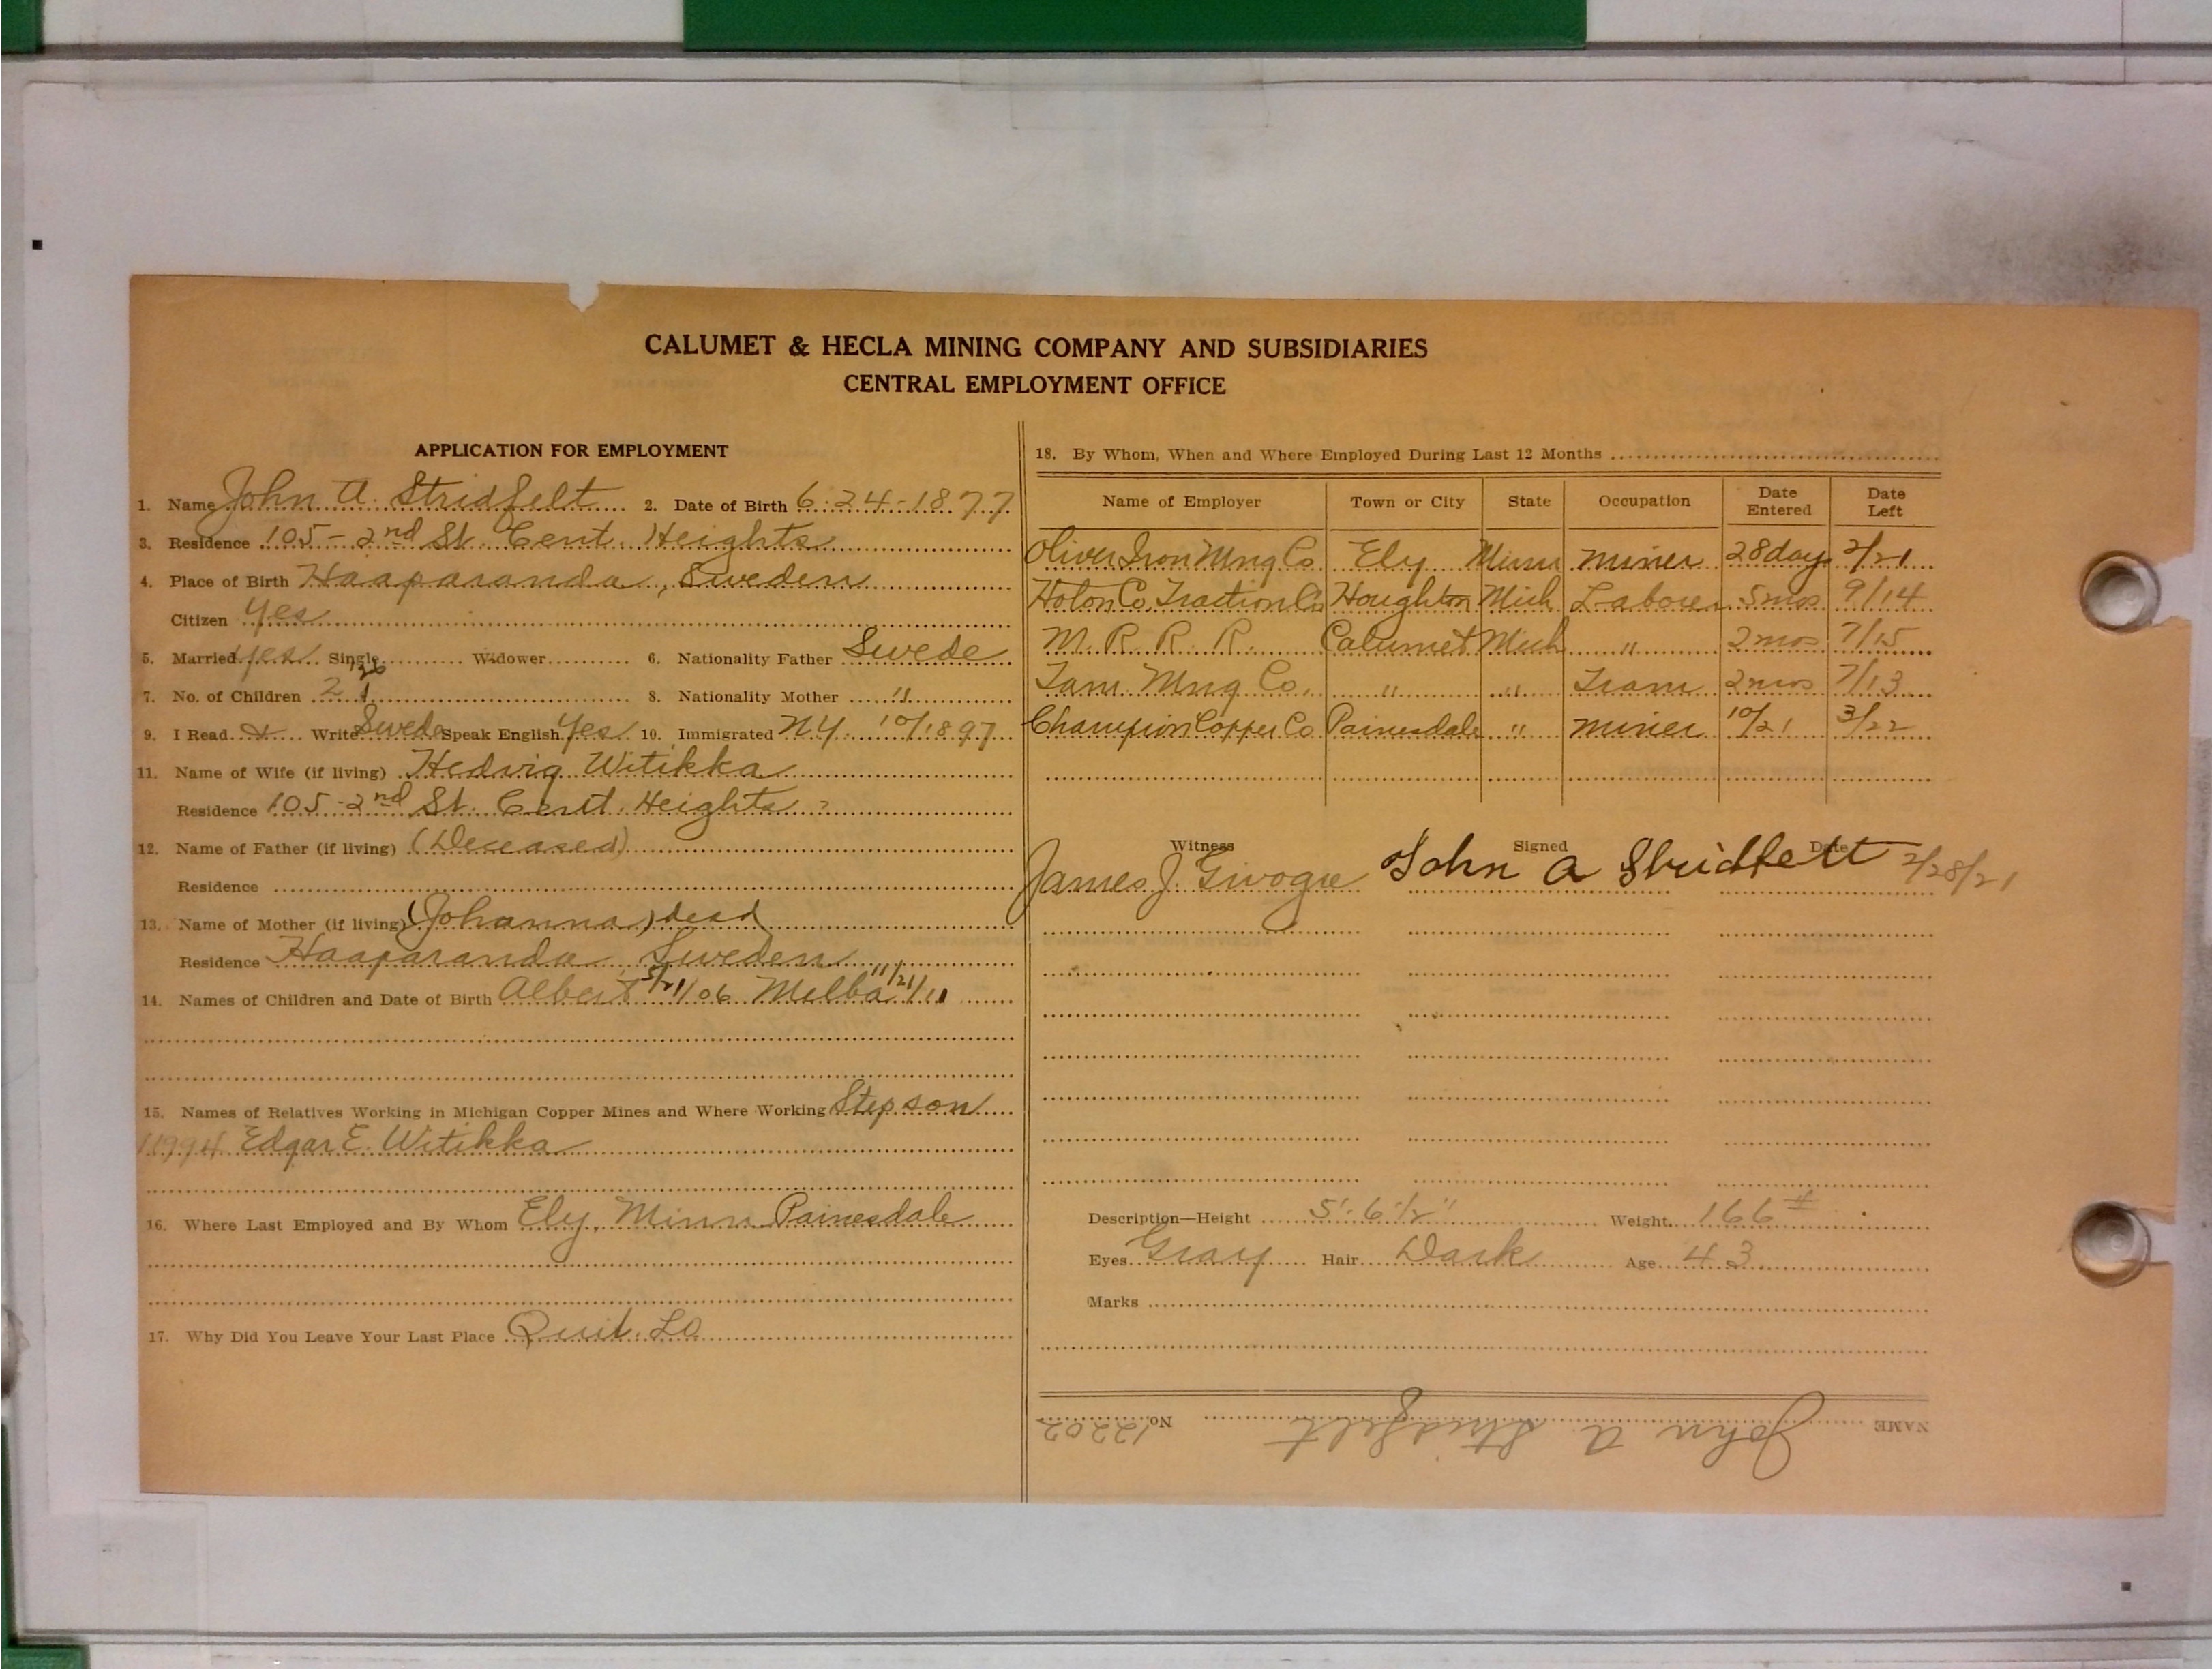 CALUMET & HECLA MINING COMPANY AND SUBSIDIARIES
CENTRAL EMPLOYMENT OFFICE
APPLICATION FOR EMPLOYMENT
1. Name John A. Stridfelt 2. Date of Birth 6-24-1877
3. Residence 105-2nd St. Cent. Heights
4. Place of Birth Haaparanda, Sweden
Citizen Yes
5. Married yes Single Widower 6. Nationality Father Swede
7. No. of Children 2 8. Nationality Mother "
9. I Read & Write Swede Speak English Yes 10. Immigrated N.Y. 10/1897
11. Name of Wife (if living) Hedvig Witikka
Residence 105-2nd St. Cent. Heights
12. Name of Father (if living) (Deceased)
Residence
13. Name of Mother (if living) (Johanna) dead
Residence Haaparanda Sweden
14. Names of Children and Date of Birth Albert 5/21/06 Melba 11/21/11
15. Names of Relatives Working in Michigan Copper Mines and Where Working Stepson
11994 Edgar E. Witikka
16. Where Last Employed and By Whom Ely, Minn Painesdale
17. Why Did You Leave Your Last Place Quit. LO
18. By Whom, When and Where Employed During Last 12 Months
Name of Employer Town or City State Occupation Date Entered Date Left
Oliver Iron Mng Co Ely Minn Miner 28 days 2/21
Hoton Co. Traction Co Houghton Mich Laborer 5 mos 9/14
M. R. R. R. Calumet Mich " 2 mos 7/15
Tam. Mng Co. " " Tram 2 mos 7/13
Champion Copper Co Painesdale " Miner 10/21 3/22
Witness Signed Date
James J. John A Stridfelt 2/28/21
Description—Height 5'-6 1/2" Weight 166#
Eyes Gray Hair Dark Age 43
Marks
NAME John A. Stridfelt No. 12202